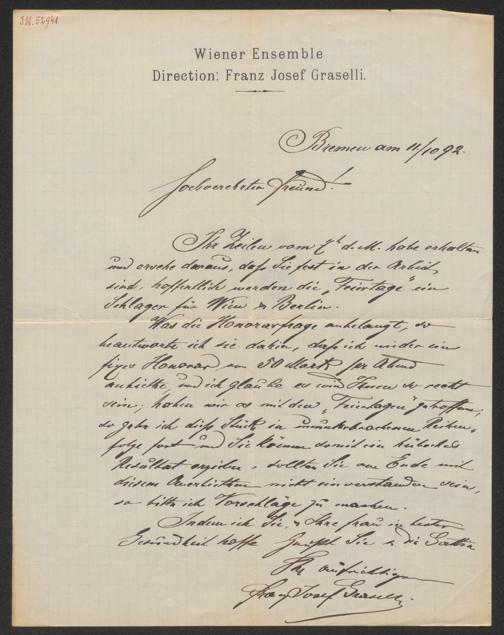 I.N. 52941
Wiener Ensemble
Direction: Franz Josef Graselli.
Bremen am 11/10 92.
Hochverehrter Freund!
Ihr Zeilen vom 7t d. M. habe erhalten
und ersehe daraus, daß Sie fest in der Arbeit
sind, hoffentlich werden die „Feiertage" ein
Schlager für Wien & Berlin.
Was die Honorarfrage anbelangt, so
beantworte ich sie dahin, daß ich wieder ein
fixes Honorar von 50 Mark per Abend
und ich glaube es wird Ihnen so recht
sein; haben wir es mit den „Feiertagen" getroffen,
so gebe ich dieß Stück in ununterbrochenen Reihen-
folge fort und Sie können damit ein hübsches
Resultat erzielen, sollten Sie am Ende mit
diesem nicht einverstanden sein,
so bitte ich Vorschläge zu machen.
Indem ich Sie, & Ihre Frau in bester
Gesundheit hoffe Sie & die Gattin
Ihr aufrichtiger
Franz Josef Graselli.